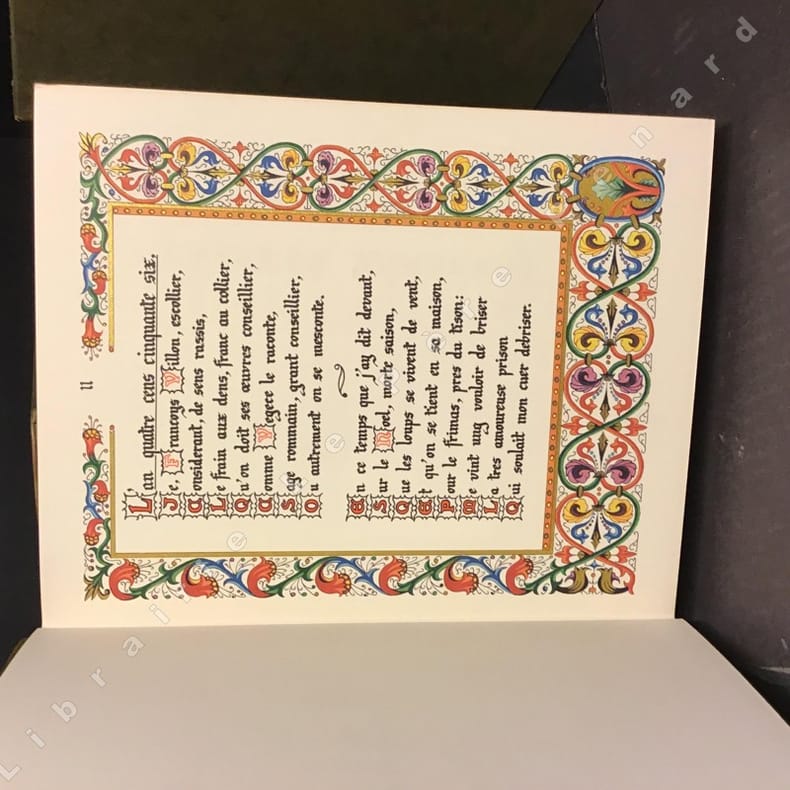 11
L'an quatre cens cinquante six,
Je, Francoys Villon, escollier,
Considerant, de sens rassis,
Le frain aux dens, franc au collier,
Qu'on doit ses œuvres conseillier,
Comme Vegece le raconte,
Sage rommain, grant conseillier,
Ou autrement on se mesconte.
En ce temps que j'ay dit devant,
Sur le Noel, morte saison,
Que les loups se vivent de vent,
Et qu'on se tient en sa maison,
Pour le frimas, pres du tison:
Me vint ung vouloir de briser
La tres amoureuse prison
Qui soulait mon cuer debriser.